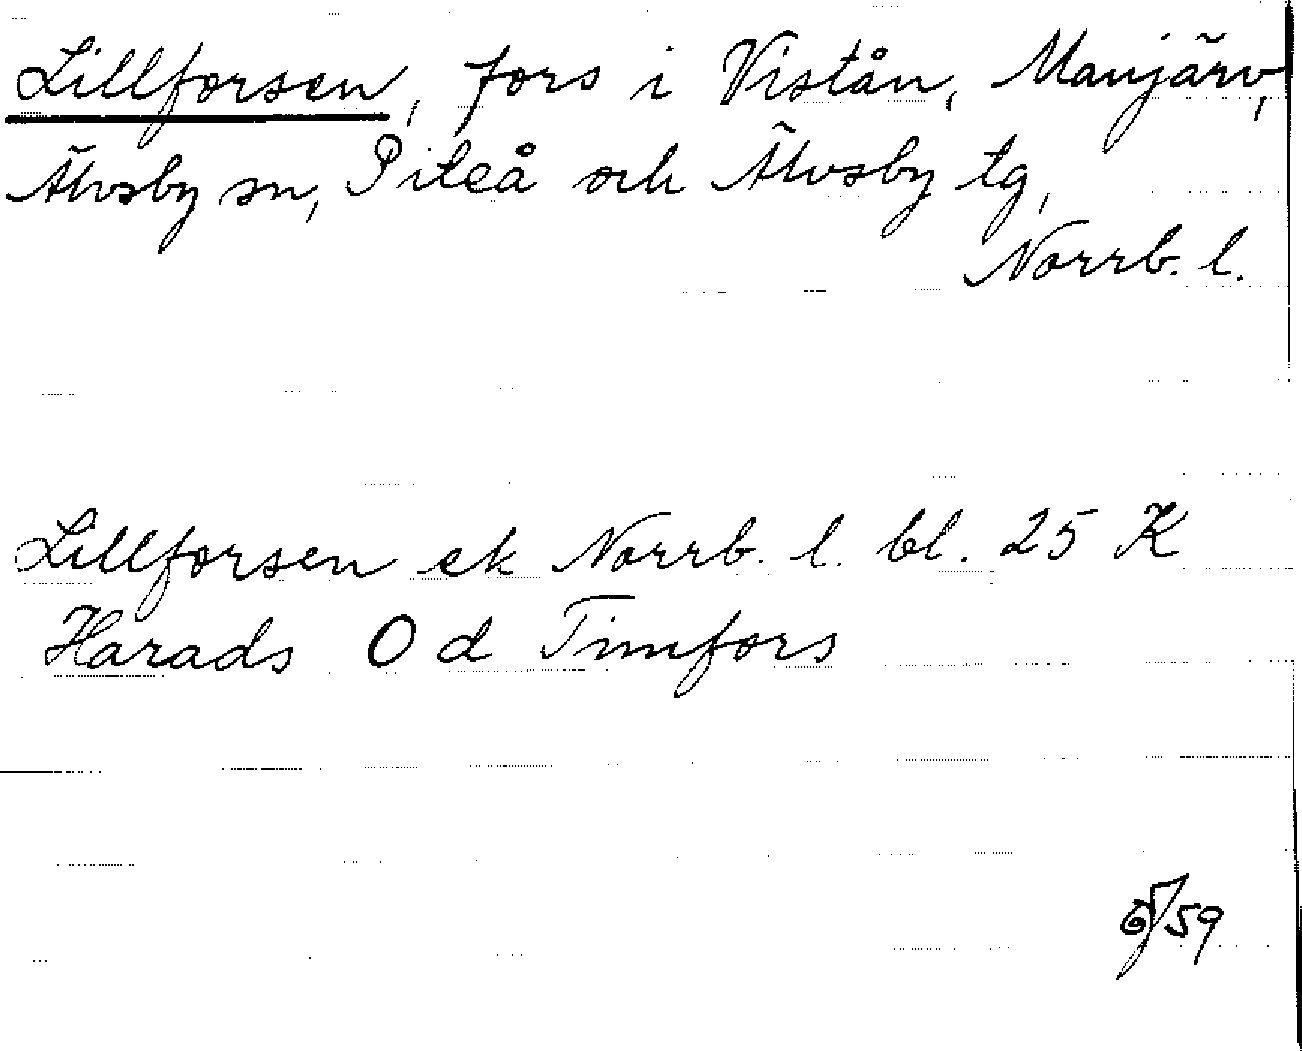 Lillforsen, fors i Vistån, Manjärv,
Älvsby sn, Piteå och Älvsby tg,
Norrb. l.
Lillforsen ek Norrb. l. bl. 25 K
Harads O d Timfors
59